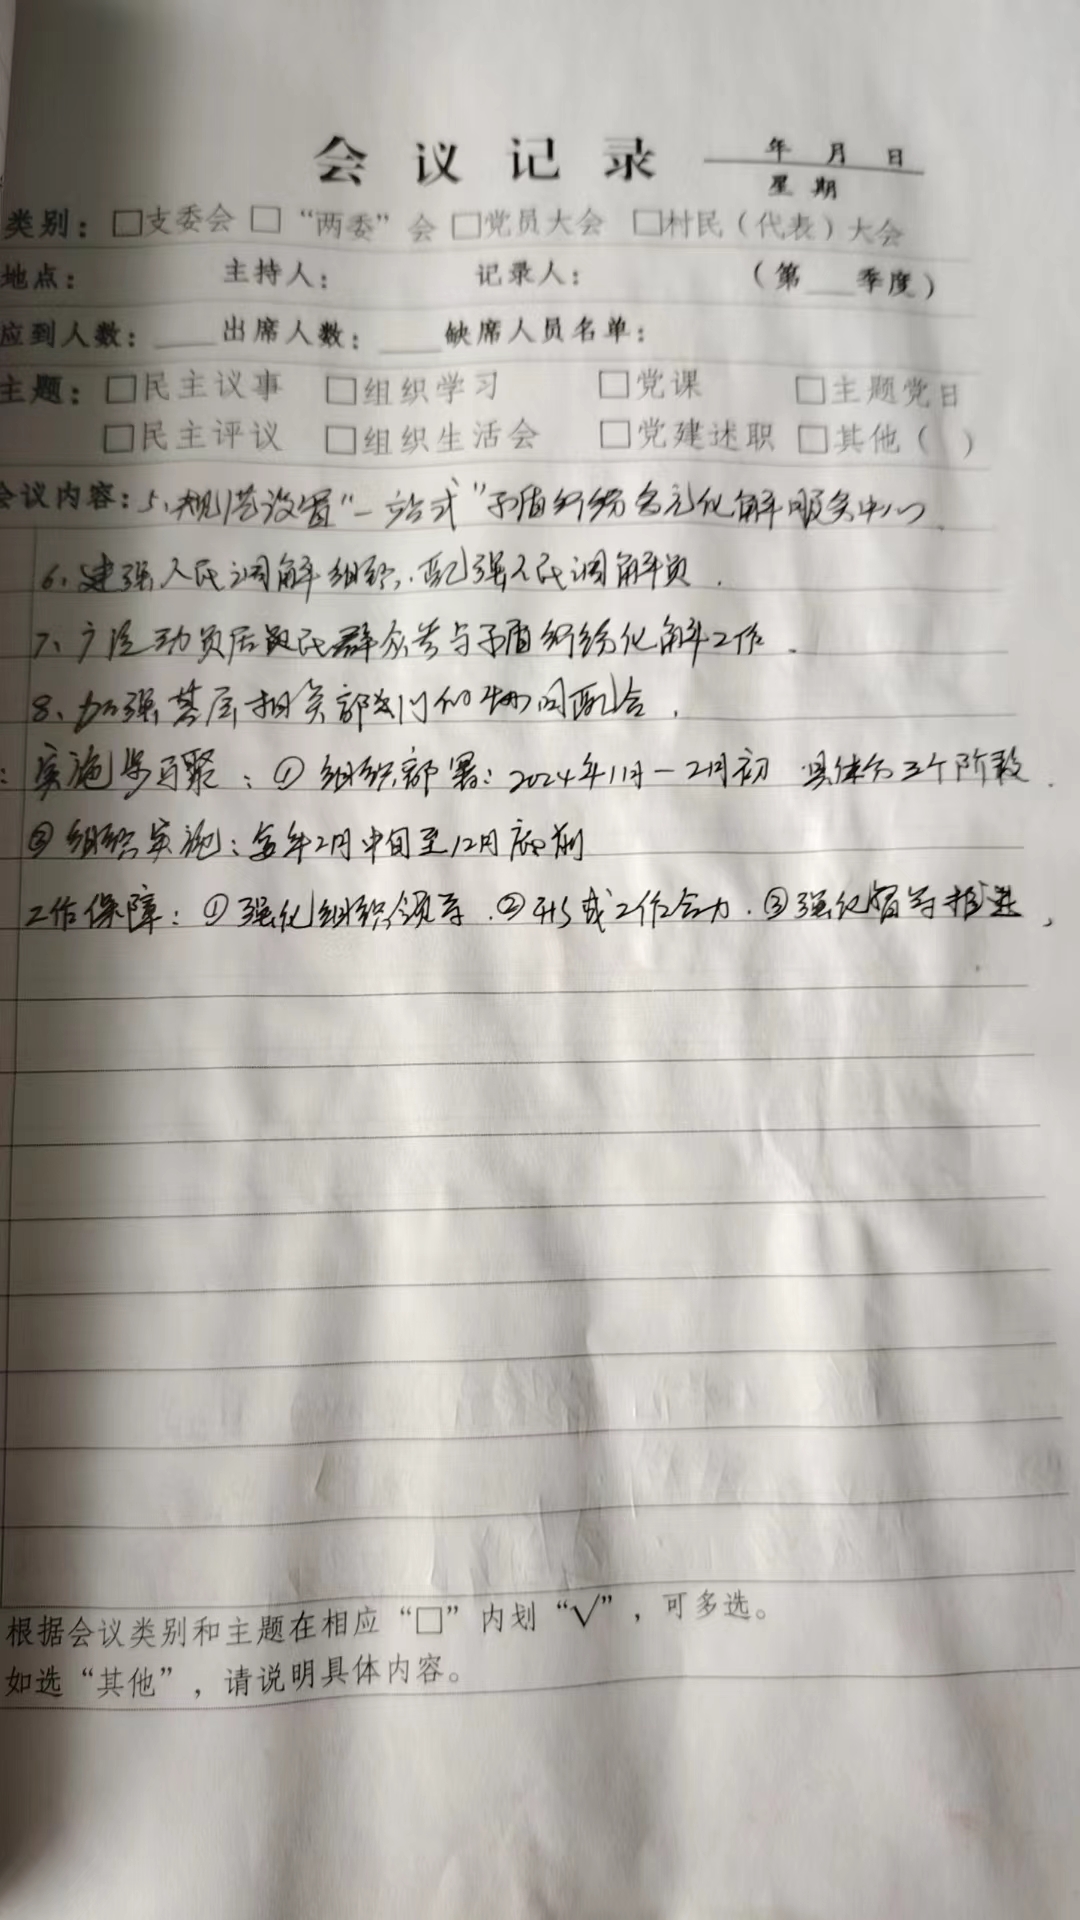 会议记录 年 月 日
星 期
类别：□支委会 □ “两委”会 □党员大会 □村民（代表）大会
地点： 主持人： 记录人： （第___季度）
应到人数：___出席人数：___缺席人员名单：
主题：□民主议事 □组织学习 □党课 □主题党日
□民主评议 □组织生活会 □党建述职 □其他（ ）
会议内容：5、规范设置“一站式”矛盾纠纷多元化解服务中心
6、建强人民调解组织，配强人民调解员．
7、广泛动员居民群众参与矛盾纠纷化解工作．
8、加强基层相关部门的协同配合．
：实施步骤：①组织部署：2024年11月－2月初 具体分三个阶段．
②组织实施：每年2月中旬至12月底前
工作保障：①强化组织领导．②形成工作合力．③强化督导推进，
根据会议类别和主题在相应“□”内划“√”，可多选。
如选“其他”，请说明具体内容。